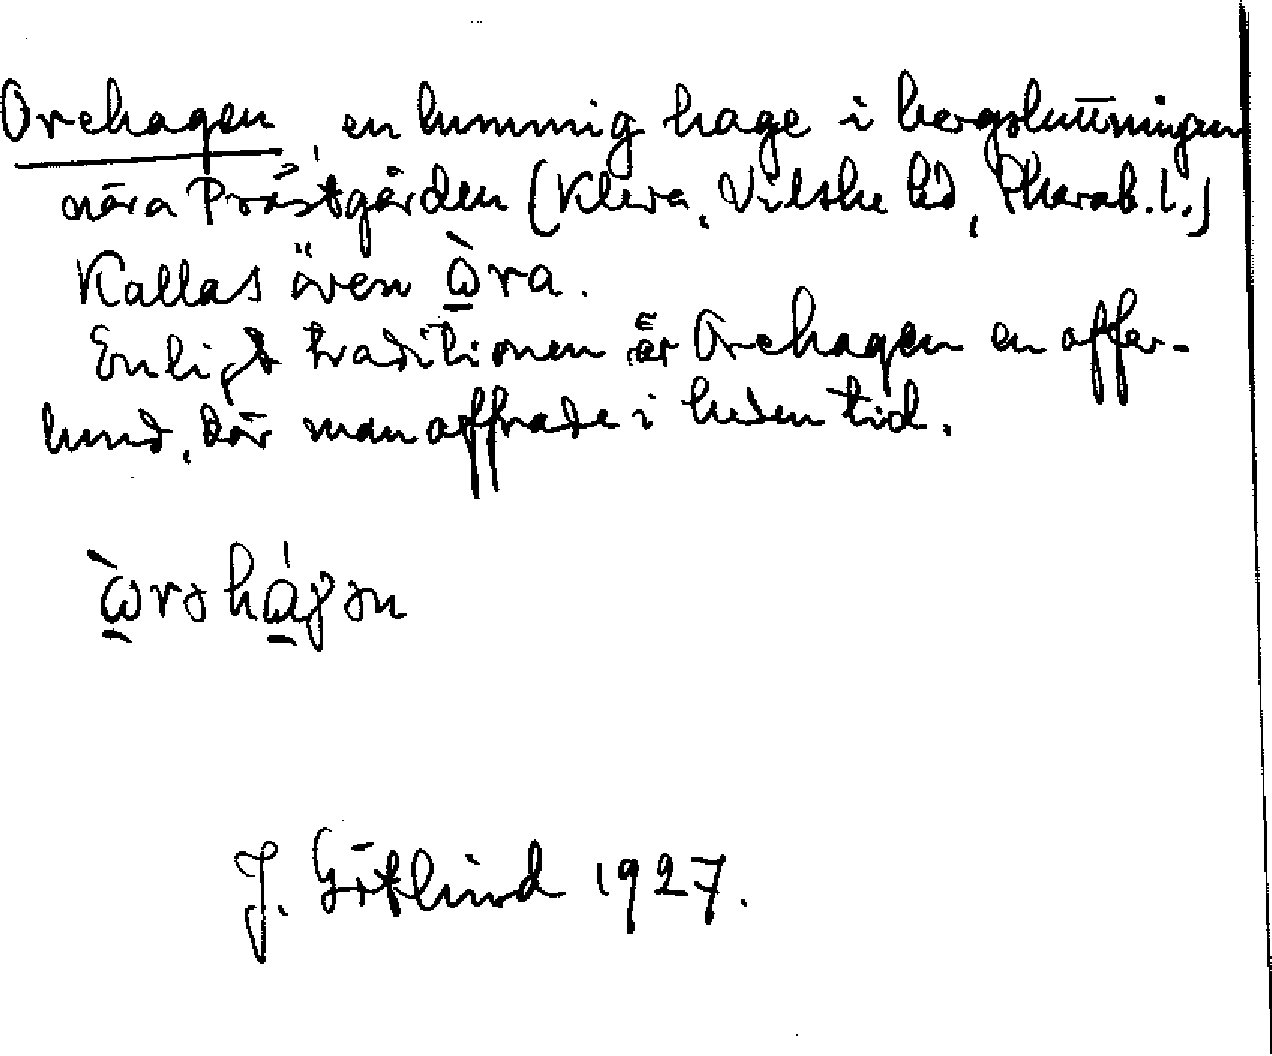 Orehagen, en lummig hage i bergsluttningen
nära Prästgården (Kleva, Vilske hd, Skarab. l.)
Kallas även ὼ̱ra.
Enligt traditionen är Orehagen en offer-
lund, där man offrade i heden tid.
ὼ̱rəhá̱gən
J. Götlind 1927.